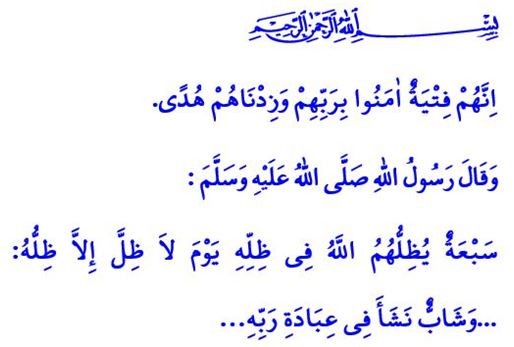 بِسْمِ اللهِ الرَّحْمٰنِ الرَّحِيمِ
اِنَّهُمْ فِتْيَةٌ اٰمَنُوا بِرَبِّهِمْ وَزِدْنَاهُمْ هُدًى.
وَقَالَ رَسُولُ اللهِ صَلَّى اللهُ عَلَيْهِ وَسَلَّمَ :
سَبْعَةٌ يُظِلُّهُمُ اللَّهُ فِى ظِلِّهِ يَوْمَ لاَ ظِلَّ إِلاَّ ظِلُّهُ:
...وَشَابٌّ نَشَأَ فِى عِبَادَةِ رَبِّهِ...